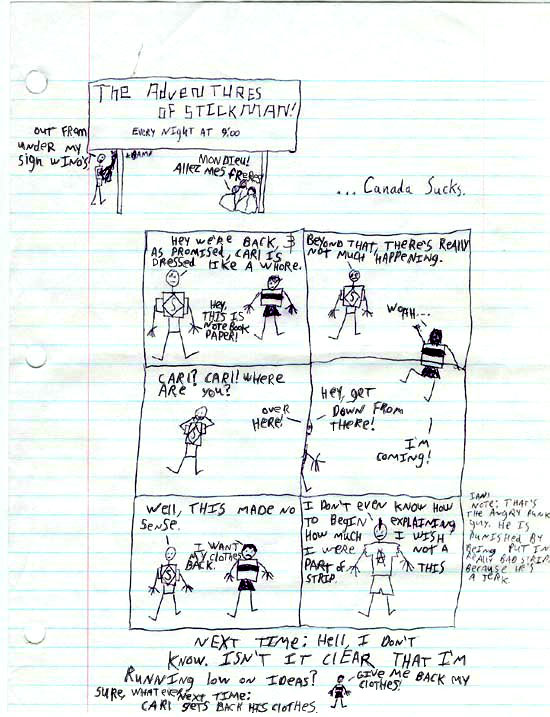 THE ADVENTURES
OF STICKMAN!
EVERY NIGHT AT 9:00
OUT FROM
UNDER MY
SIGN WINOS!
*BAM*
MON DIEU!
ALLEZ MES FRERES!
... Canada Sucks.
HEY WE'RE BACK, &
AS PROMISED, CARL IS
DRESSED LIKE A WHORE.
HEY,
THIS IS
NOTEBOOK
PAPER!
BEYOND THAT, THERE'S REALLY
NOT MUCH HAPPENING.
WOAH...
CARL? CARL! WHERE
ARE YOU?
OVER
HERE!
HEY, GET
DOWN FROM
THERE!
I'M
COMING!
WELL, THIS MADE NO
SENSE.
I WANT
MY CLOTHES
BACK.
I DON'T EVEN KNOW HOW
TO BEGIN EXPLAINING
HOW MUCH I WISH
I WERE NOT A
PART OF THIS
STRIP.
IAN!
NOTE: THAT'S
THE ANGRY PUNK
GUY. HE IS
PUNISHED BY
BEING PUT IN
REALLY BAD STRIPS
BECAUSE HE'S
A JERK.
NEXT TIME: HELL, I DON'T
KNOW. ISN'T IT CLEAR THAT I'M
RUNNING LOW ON IDEAS?
SURE, WHATEVER.
NEXT TIME:
CARL GETS BACK HIS CLOTHES.
GIVE ME BACK MY
CLOTHES!